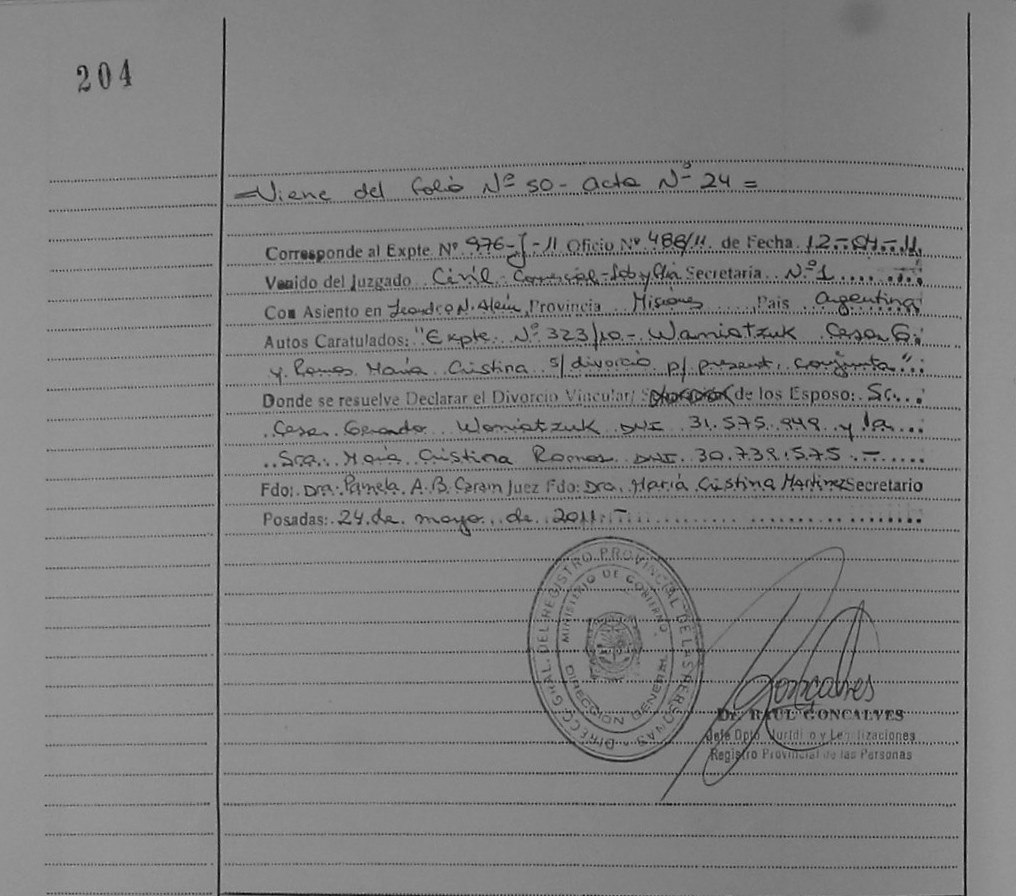 204
=Viene del folio Nº 50- acta Nº 24=
Corresponde al Expte Nº 976-J-11 Oficio Nº 488/11 de Fecha 12-04-11
Venido del Juzgado Civil Comercial-Lab y Flia Secretaría Nº1
Con Asiento en Leandro N. Alem, Provincia Misiones País Argentina
Autos Caratulados: "Expte Nº 323/10- Woniatzuk Cesar G.
y Ramos María Cristina s/divorcio p/ present. conjunta"
Donde se resuelve Declarar el Divorcio Vincular/ de los Esposo: Sr.
Cesar Gerardo Woniatzuk DNI 31.575.949 y la
Sra. María Cristina Ramos DNI 30.739.575.-
Fdo: Dra. Pamela A.B. Juez Fdo: Dra. María Cristina Martinez Secretario
Posadas: 24 de mayo de 2011-
DIRECC. GRAL. DEL REGISTRO PROVINCIAL DE LAS PERSONAS
MINISTERIO DE GOBIERNO
DIRECCION GENERAL
Gonçalves
Dr. RAUL GONCALVES
Jefe Dpto. Jurídico y Legalizaciones
Registro Provincial de las Personas